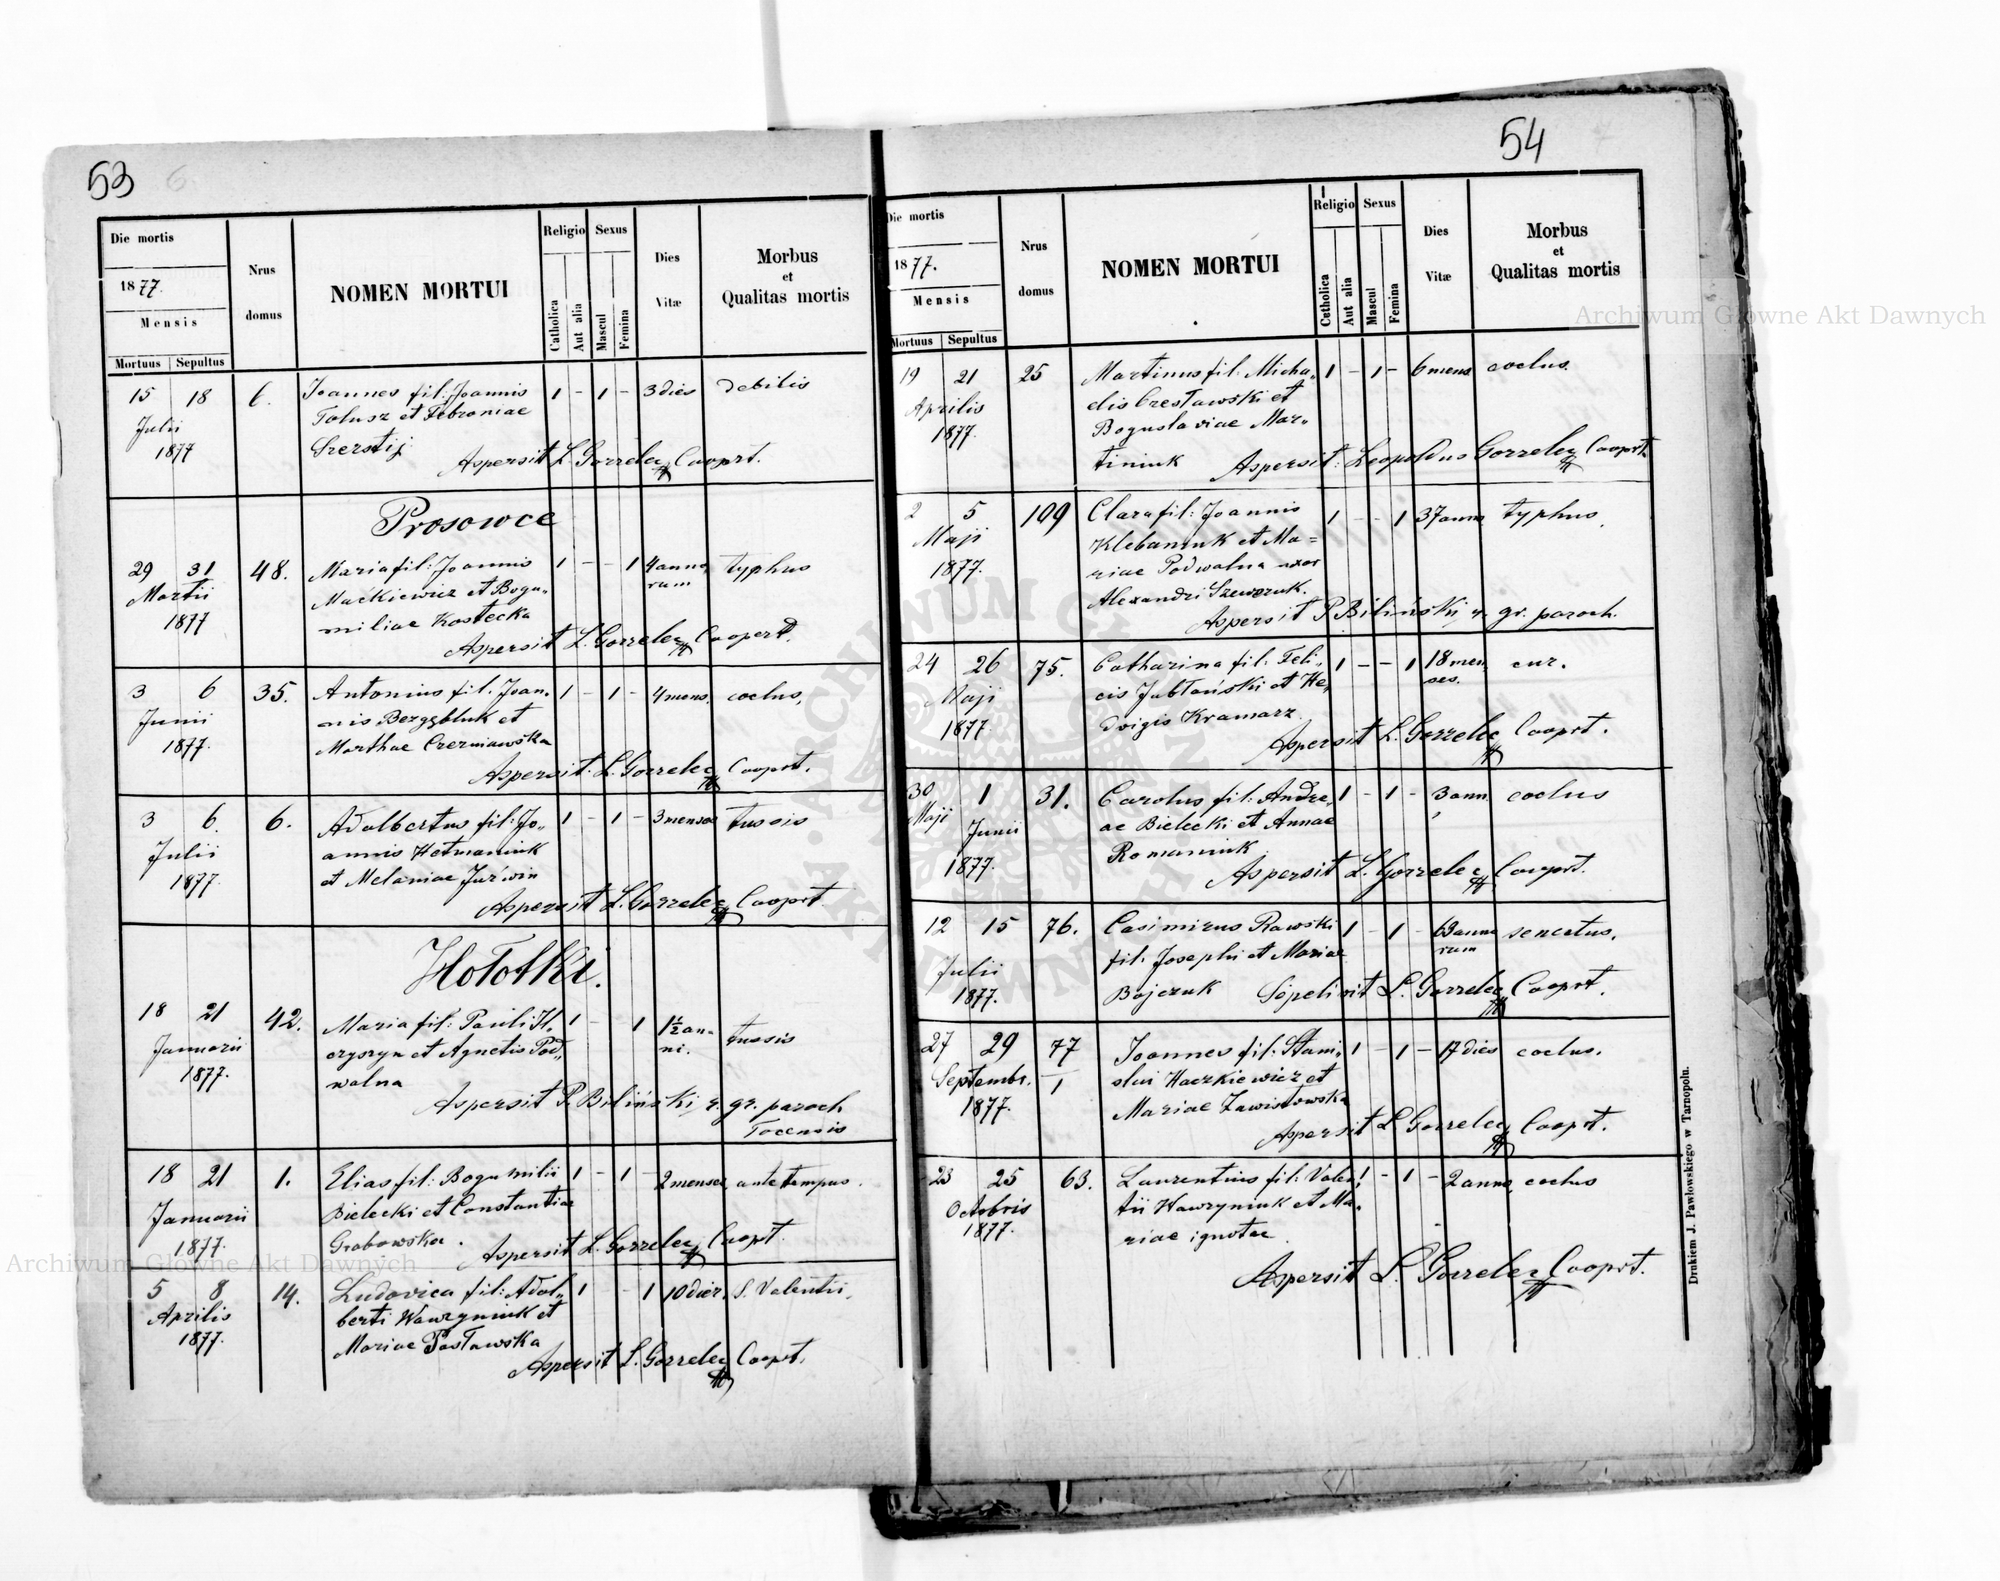 53
Die mortis
1877.
Mensis
Mortuus Sepultus
Nrus domus
NOMEN MORTUI
Religio
Catholica
Aut alia
Sexus
Mascul
Femina
Dies Vitæ
Morbus
et
Qualitas mortis
15 18 6. Joannes fil: Joannis 1 - 1 - 3 dies debilis
Julii Tolusz et Febroniae
1877 Szerstij
Aspersit L. Gorzelec Cooprt.
Prosowce
29 31 48. Maria fil: Joannis 1 - - 1 4 anno typhus
Martii Maćkiewicz et Bogu„ rum
1877 miliae Kostecka
Aspersit L. Gorzelec Coopert.
3 6 35. Antonius fil: Joan„ 1 - 1 - 4 mens. coelus,
Junii nis et
1877. Marthae Czerniawska
Aspersit. L. Gorzelec Cooprt.
3 6. 6. Adalbertus fil: Jo„ 1 - 1 - 3 menses tussis
Julii annis Hetmaniuk
1877. et Melaniae Jurwin
Aspersit L. Gorzelec Cooprt.
Hołotki.
18 21 42. Maria fil: Pauli 1 - 1 1½ an„ tussis
Januarii et Agnetis Pod„ ni.
1877. walna
Aspersit P. Biliński r. gr. paroch
Tocensis
18 21 1. Elias fil: Bogumilii 1 - 1 - 2 menses ante tempus.
Januarii Bielecki et Constantiae
1877. Grabowska.
Aspersit L. Gorzelec Cooprt.
5 8 14. Ludovica fil: Adal„ 1 - 1 10 dier. S. Valentii,
Aprilis berti Wawryniuk et
1877. Mariae Pasławska
Aspersit L. Gorzelec Cooprt.
54
Die mortis
1877.
Mensis
Mortuus Sepultus
Nrus domus
NOMEN MORTUI
Religio
Catholica
Aut alia
Sexus
Mascul
Femina
Dies Vitæ
Morbus
et
Qualitas mortis
19 21 25 Martinus fil: Micha„ 1 - 1 - 6 mens coelus.
Aprilis elis Czestawski et
1877. Boguslaviae Mar„
tiniuk Aspersit: Leopoldus Gorzelec Cooprt.
2 5 109 Clara fil: Joannis 1 - - 1 37 anno typhus,
Maji Klebaniuk et Ma=
1877. riae Podwalna uxor
Alexandri Szewczuk.
Aspersit P Biliński r. gr. paroch.
24 26 75. Catharina fil: Feli„ 1 - - 1 18 men cur.
Maji cis Jabłoński et He„ ses.
1877. dvigis Kramarz.
Aspersit L. Gorzelec Cooprt.
30 1 31. Carolus fil: Andre„ 1 - 1 - 3 ann. coelus
Maji Junii ae Bielecki et Annae
1877. Romaniuk
Aspersit L. Gorzelec Cooprt.
12 15 76. Casimirus Rawski 1 - 1 - 63 anno senectus.
Julii fil: Josephi et Mariae rum
1877. Bojczuk Sepelivit L. Gorzelec Cooprt.
27 29 77/1 Joannes fil: Stani„ 1 - 1 - 17 dies coelus.
Septembr. slai Haczkiewicz et
1877. Mariae Zawistowska
Aspersit L Gorzelec Cooprt.
23 25 63. Laurentius fil: Valen„ 1 - 1 - 2 anno, coelus
Octobris tii Hawryniuk et Ma„
1877. riae ignotae
Aspersit L. Gorzelec Cooprt.
Drukiem J. Pawłowskiego w Tarnopolu.
Archiwum Główne Akt Dawnych
Archiwum Główne Akt Dawnych